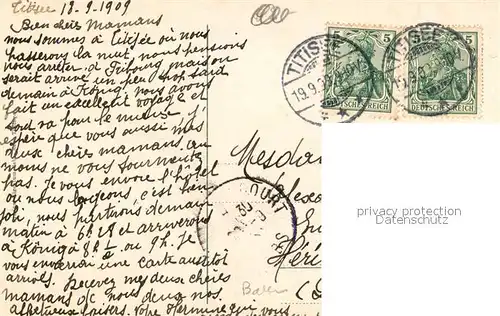 Titisee 19.9.1909
Bien chères Mamans
nous sommes à Titisée où nous
passerons la nuit, nous pensions
nous arrêter à Fribourg mais on
serait arrivé un peu trop tard
demain à König, nous avons
fait un excellent voyage et
tout va pour le mieux. J'
espère que vous aussi mes
deux chères mamans, au
moins ne vous tourmentez
pas. Je vous envoie l'hôtel
ou nous logeons, c'est bien
joli, nous partirons demain
matin à 6h et arriverons
à König à 8h ou 9h. Je
vous enverrai une carte aussitôt
arrivés. Recevez mes deux chères
mamans de nous deux nos
affectueux baisers. Votre qui vous
TITISEE
19.9.
5
DEUTSCHES REICH
TITISEE
19.9.
5
DEUTSCHES REICH
Mesda
COURT
30
Héri
Baden
privacy protection
watermark